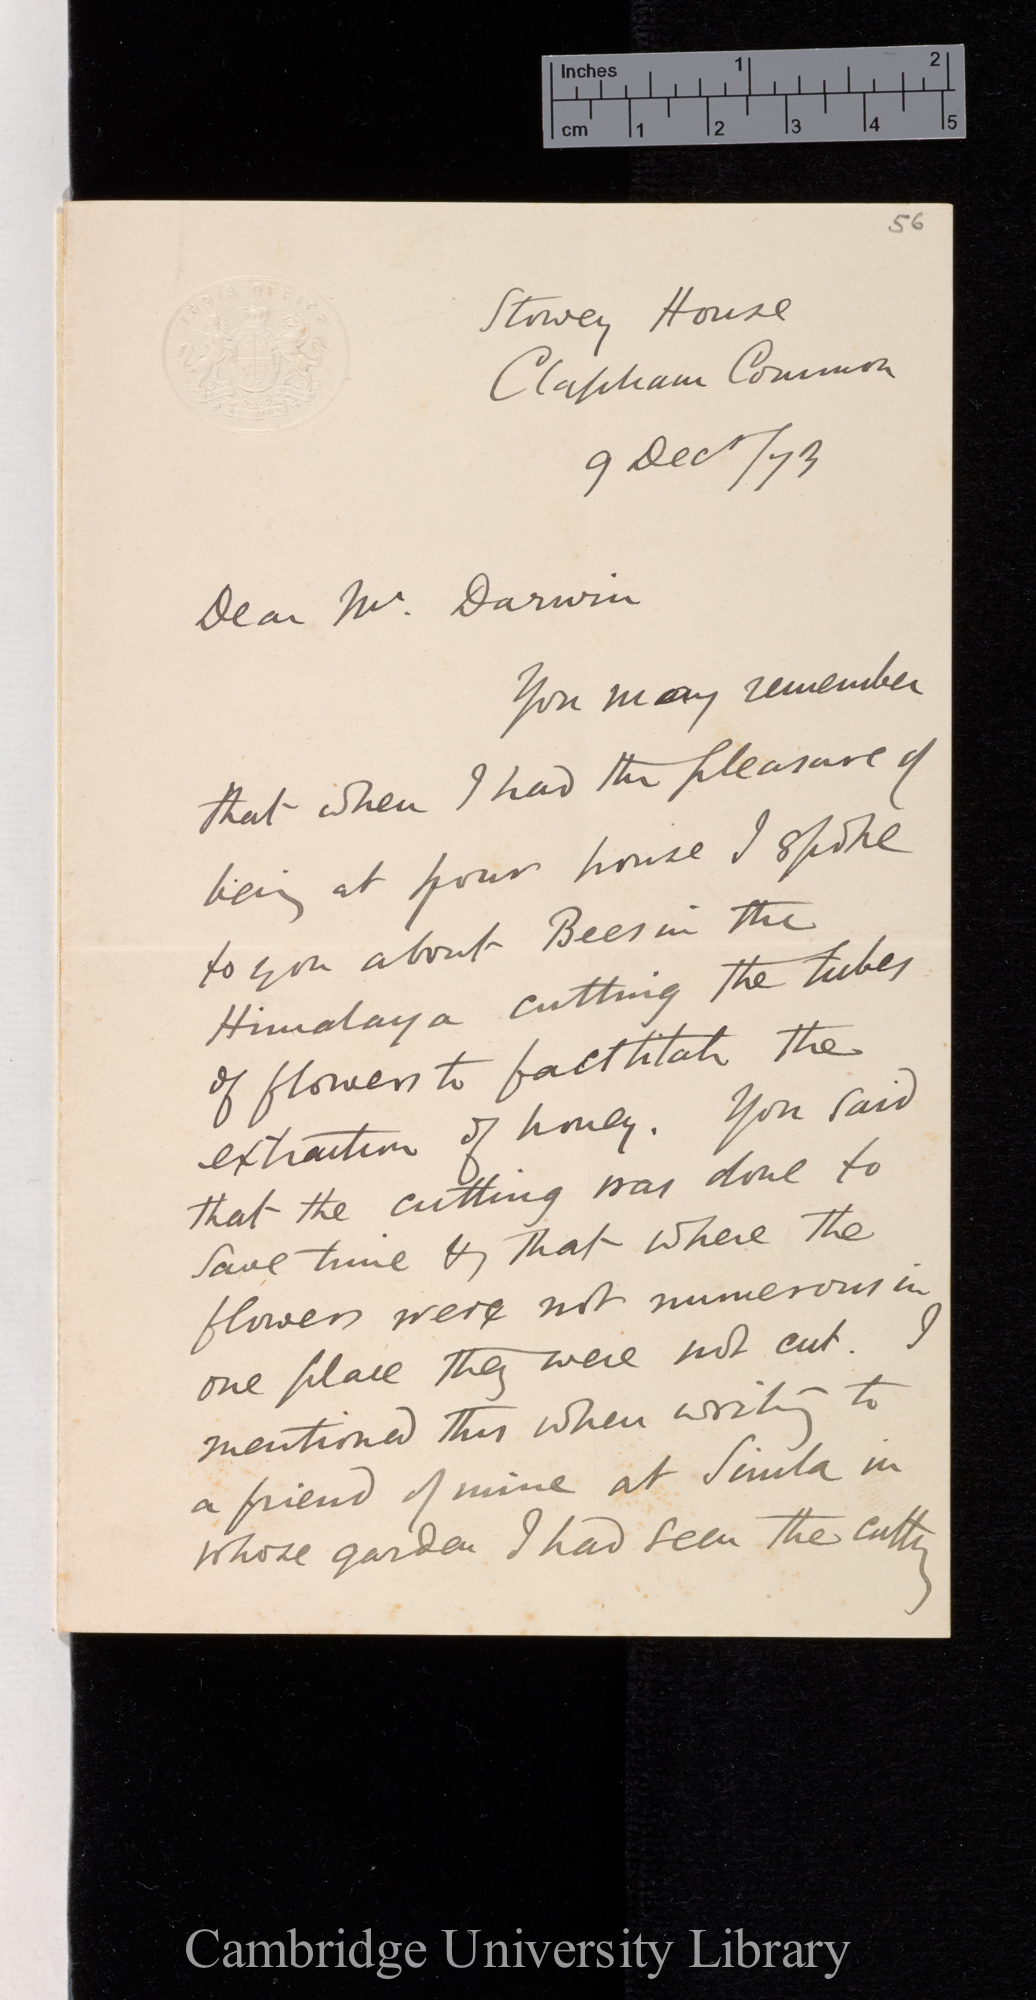 Inches 1 2
cm 1 2 3 4 5
56
INDIA OFFICE
Stowey House
Clapham Common
9 Decr/73
Dear Mr. Darwin
You may remember
that when I had the pleasure of
being at your house I spoke
to you about Bees in the
Himalaya cutting the tubes
of flowers to facttitate the
extraction of honey. You said
that the cutting was done to
save time & that where the
flowers were not numerous in
one place they were not cut. I
mentioned this when writing to
a friend of mine at Simla in
whose garden I had seen the cutting
Cambridge University Library